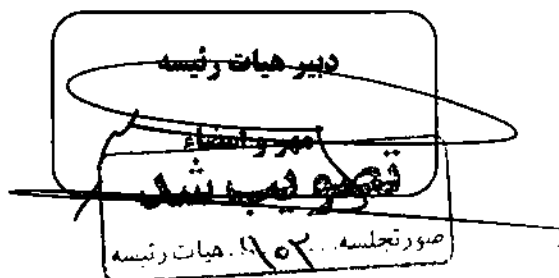 دبیر هیات رئیسه
مهر و امضاء
تصویب شد
صورتجلسه ۱۵۳ هیات رئیسه